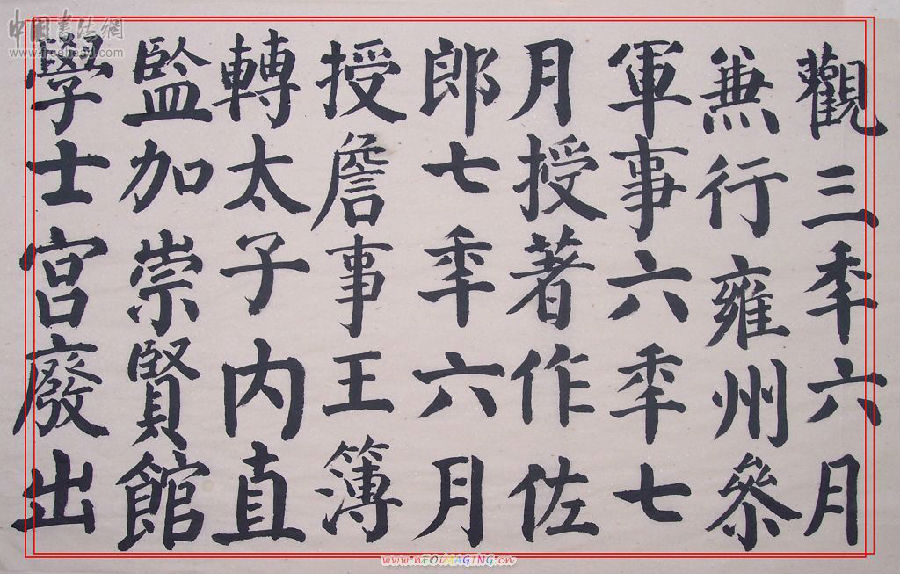 觀三秊六月
兼行雍州參
軍事六秊七
月授著作佐
郎七秊六月
授詹事王簿
轉太子内直
監加崇賢館
學士宮廢出
中国書法網
www.nEOiMAGING.cn